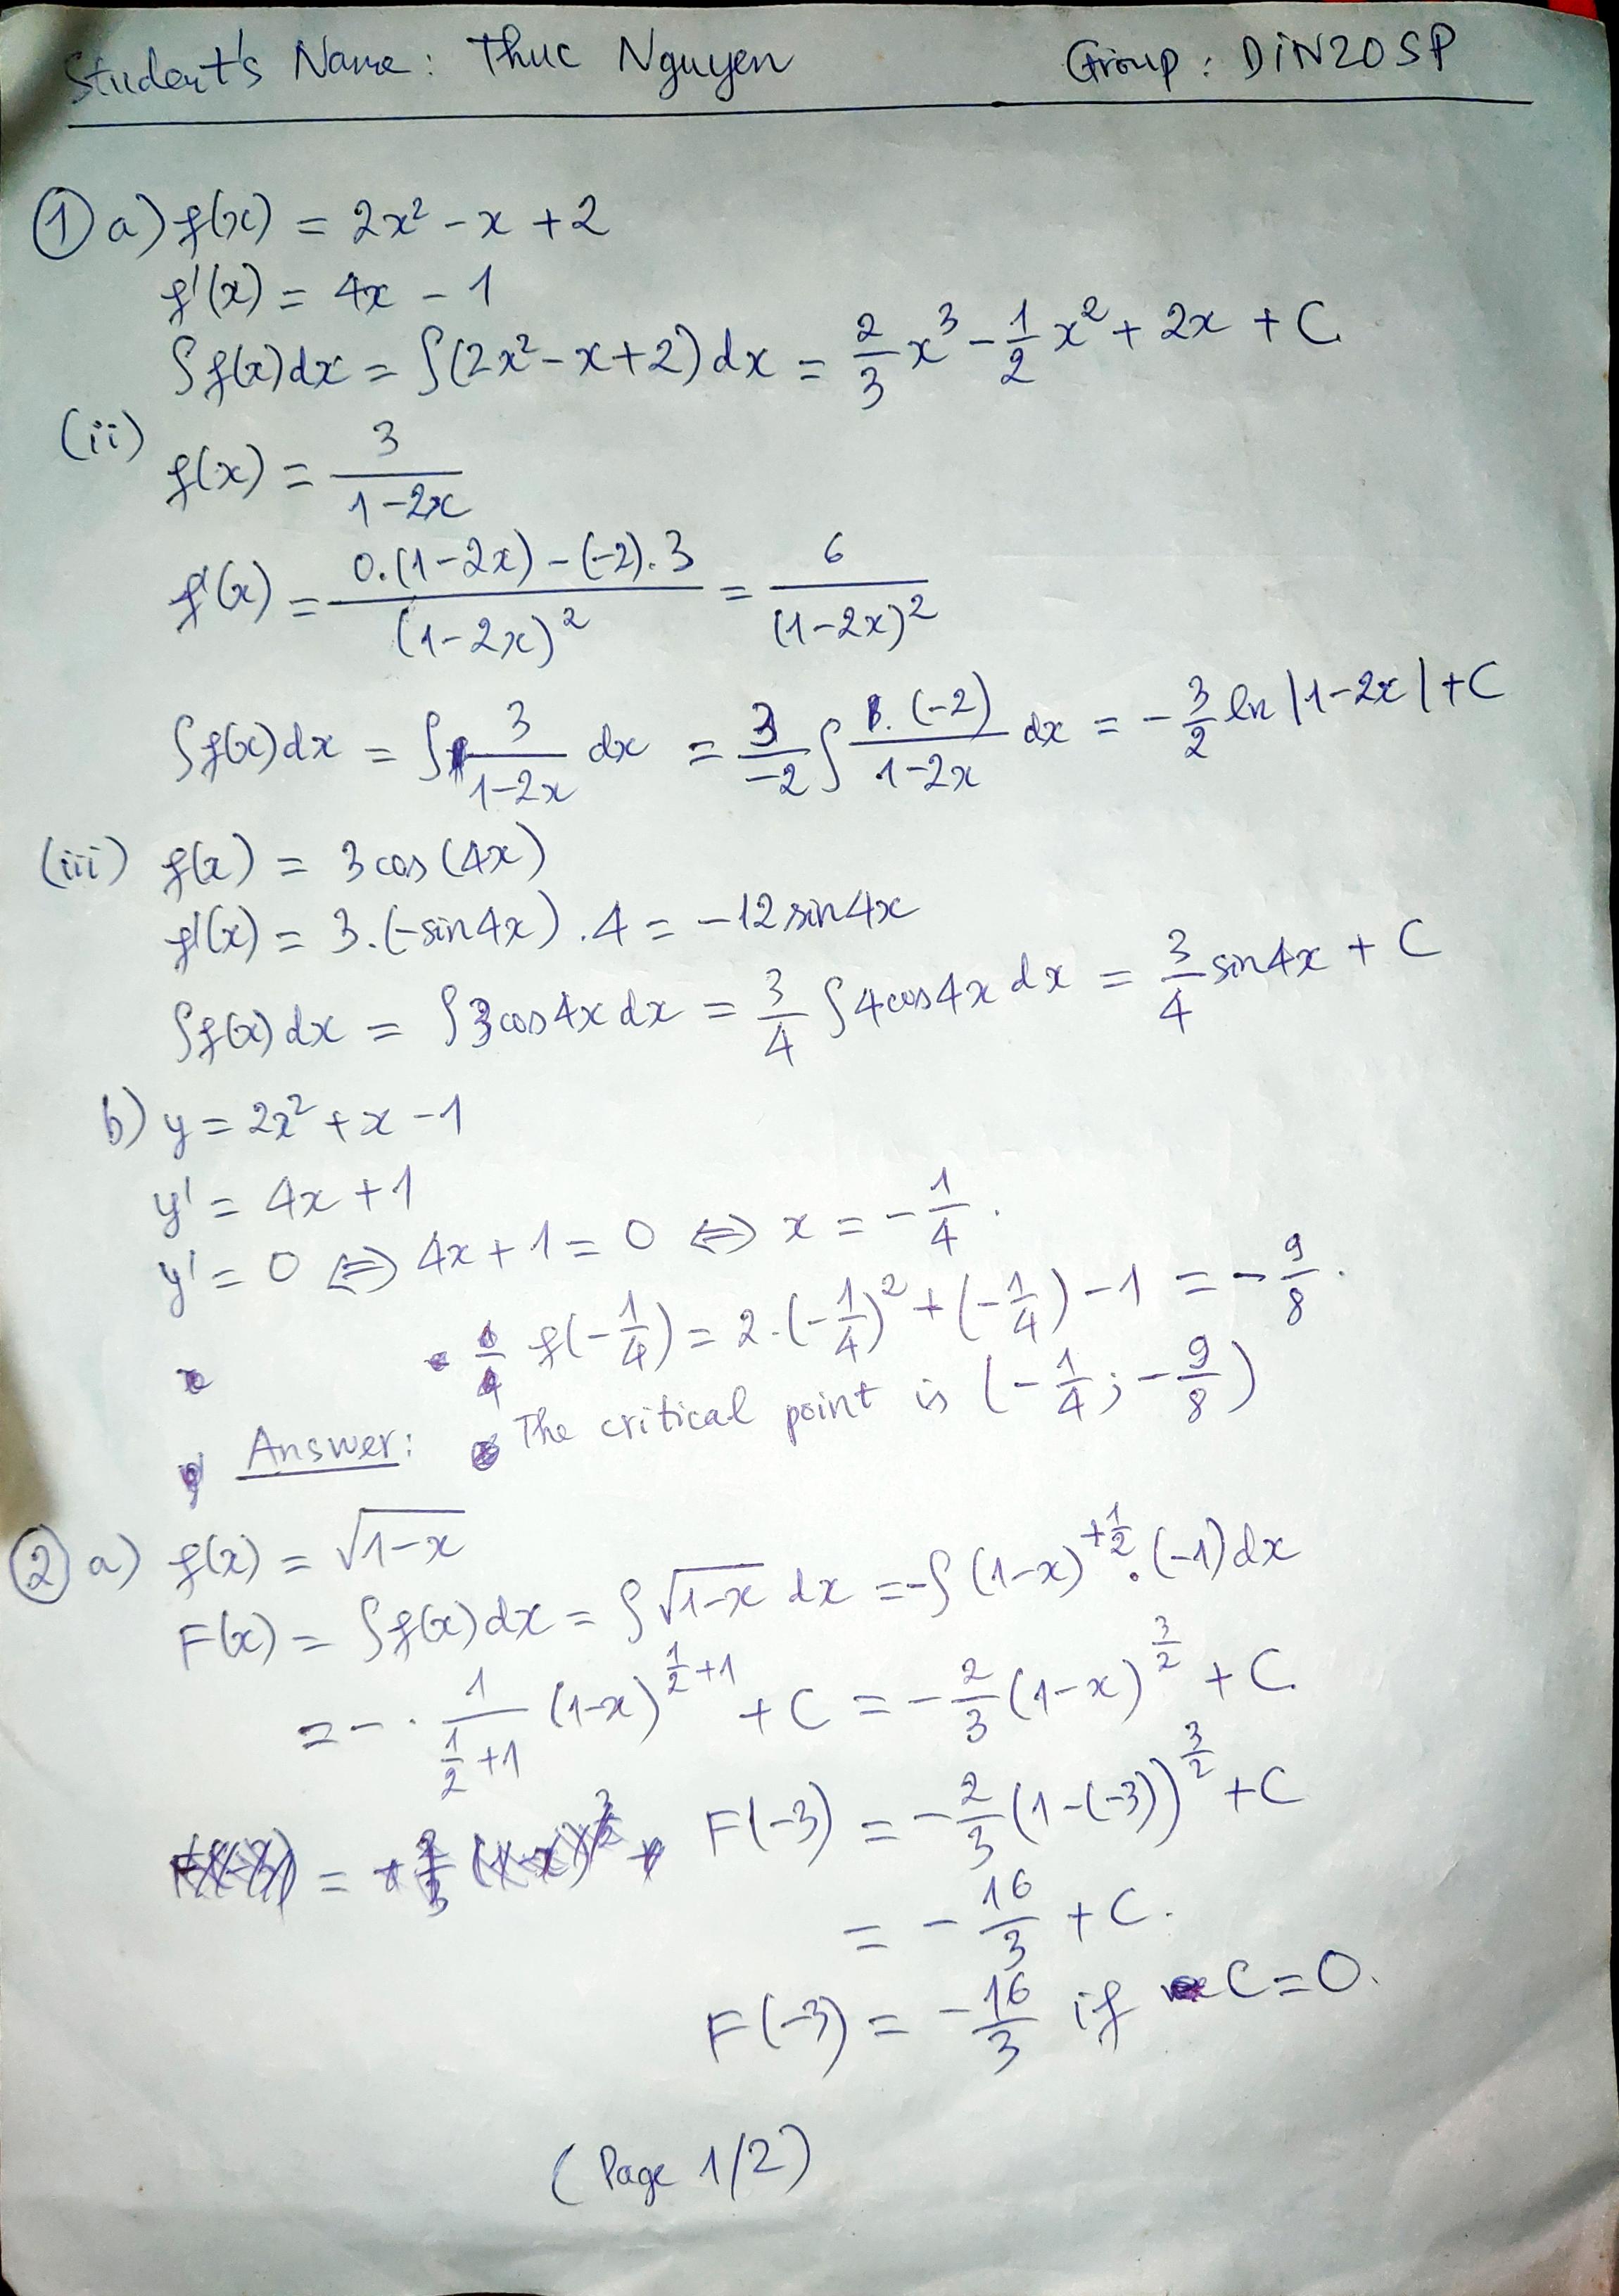 Student's Name: Thuc Nguyen Group: DIN20SP
① a) f(x) = 2x² - x + 2
f'(x) = 4x - 1
∫f(x)dx = ∫(2x² - x + 2)dx = 2/3 x³ - 1/2 x² + 2x + C
(ii) f(x) = 3/(1-2x)
f'(x) = (0.(1-2x) - (-2).3)/(1-2x)² = 6/(1-2x)²
∫f(x)dx = ∫ 3/(1-2x) dx = 3/-2 ∫ 1.(-2)/(1-2x) dx = - 3/2 ln|1-2x| + C
(iii) f(x) = 3cos(4x)
f'(x) = 3.(-sin4x).4 = -12sin4x
∫f(x)dx = ∫3cos4x dx = 3/4 ∫4cos4x dx = 3/4 sin4x + C
b) y = 2x² + x - 1
y' = 4x + 1
y' = 0 ⇔ 4x + 1 = 0 ⇔ x = - 1/4.
f(-1/4) = 2.(-1/4)² + (-1/4) - 1 = - 9/8.
Answer: The critical point is (-1/4; -9/8)
② a) f(x) = √(1-x)
F(x) = ∫f(x)dx = ∫√(1-x) dx = -∫(1-x)^(+1/2).(-1)dx
= - . 1/(1/2+1) (1-x)^(1/2+1) + C = - 2/3 (1-x)^(3/2) + C
F(-3) = - 2/3 (1-(-3))^(3/2) + C
= - 16/3 + C.
F(-3) = - 16/3 if C = 0.
(Page 1/2)